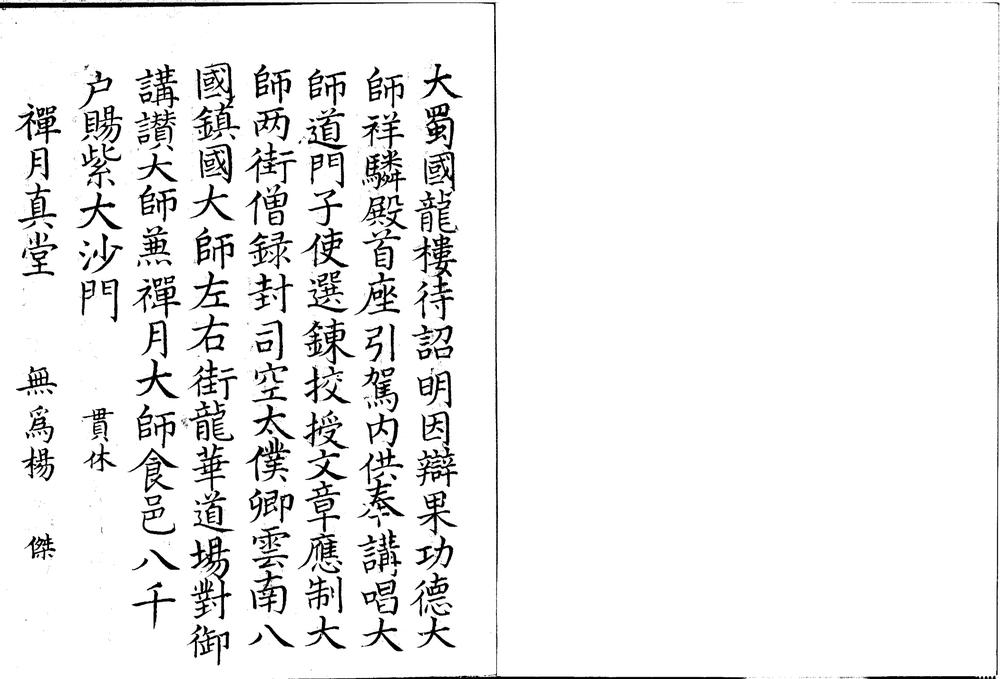 大蜀國龍樓待詔明因辯果功德大
師祥驎殿首座引駕内供奉講唱大
師道門子使選鍊挍授文章應制大
師两街僧録封司空太僕卿雲南八
國鎮國大師左右街龍華道場對御
講讃大師蒹禪月大師食邑八千
户賜紫大沙門 貫休
禪月真堂 無爲楊 傑